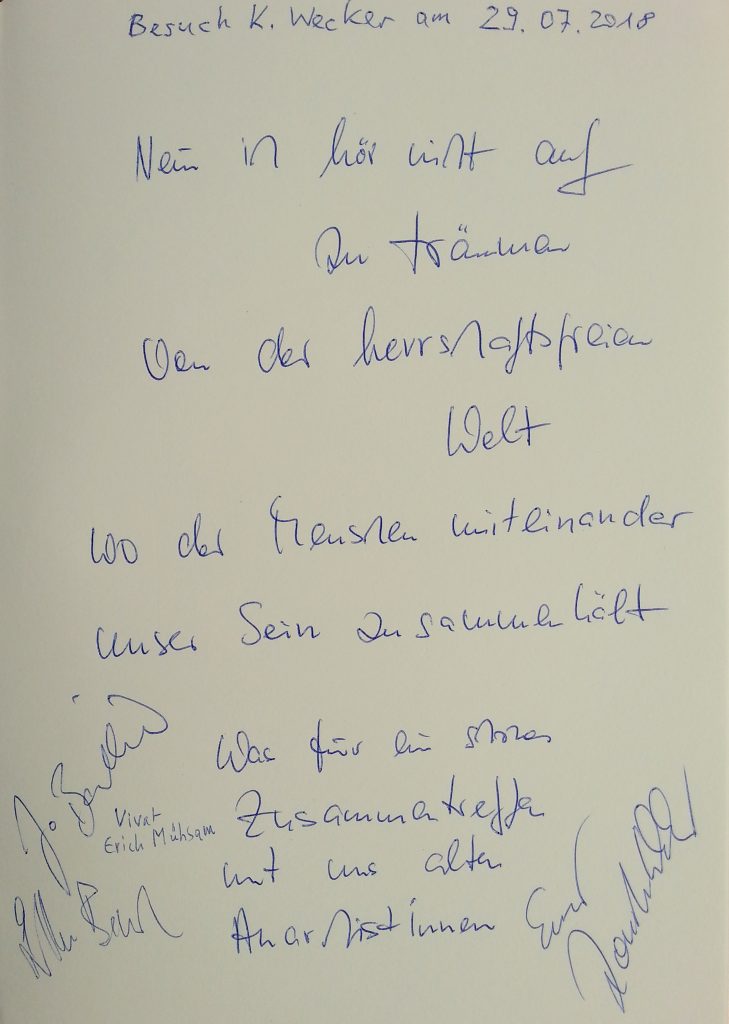 Besuch K. Wecker am 29.07.2018
Nein ich hör nicht auf
zu träumen
Von der herrschaftsfreien
Welt
wo der Menschen miteinander
unser Sein zusammenhält
Was für ein schönes
Zusammentreffen
mit uns alten
Anarchistinnen
Euer
Vivat
Erich Mühsam